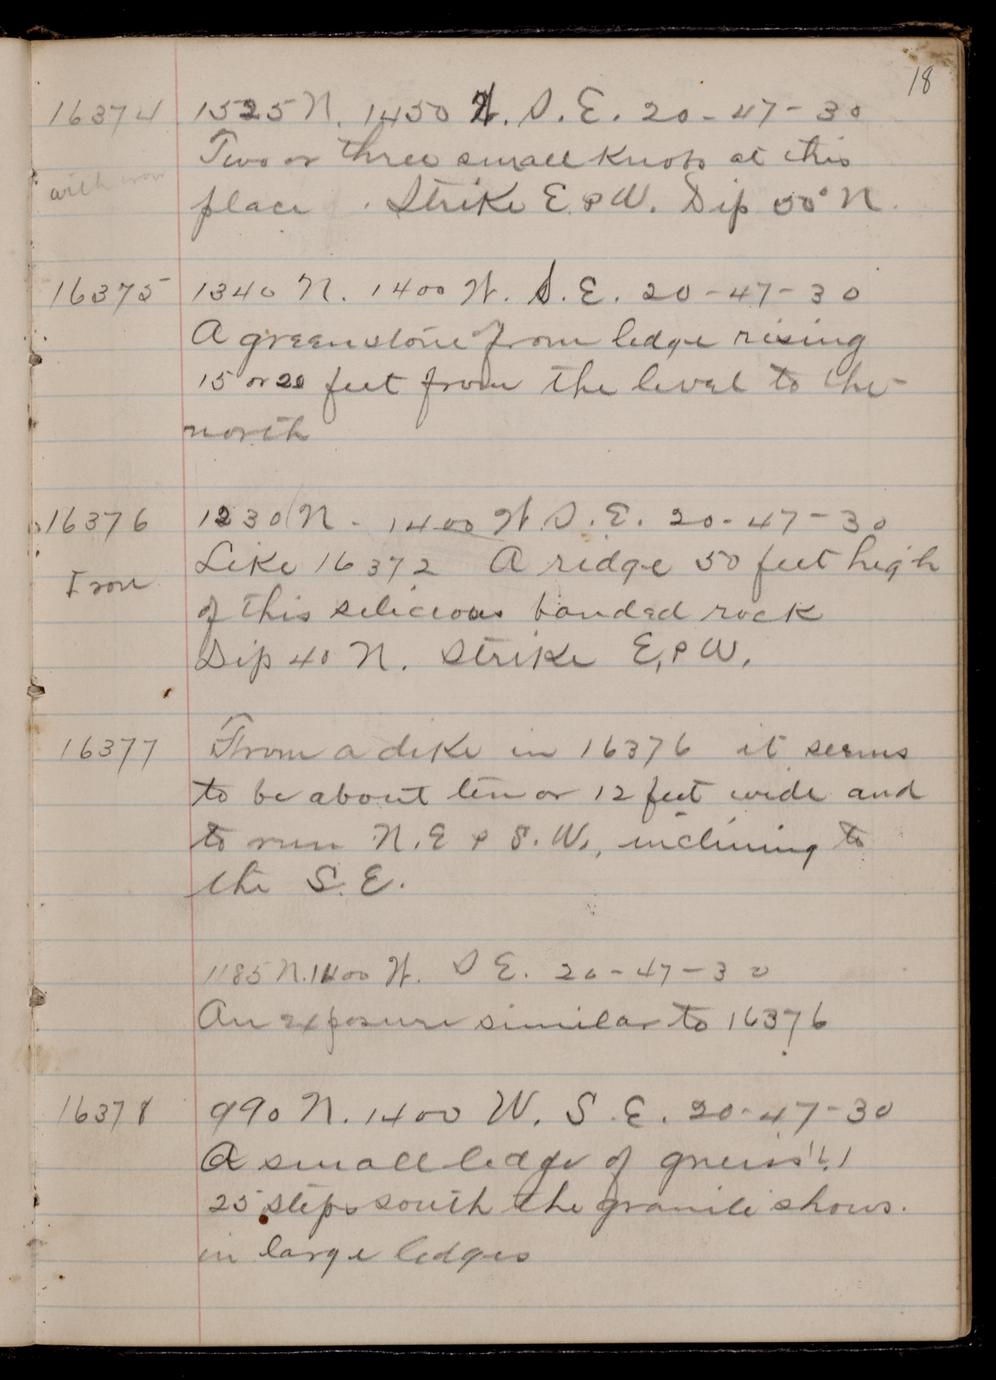 18
16374 1525 N. 1450 W. S. E. 20-47-30
Two or three small knobs at this
with iron
place . Strike E & W. Dip 50° N.
16375 1340 N. 1400 W. S. E. 20-47-30
A greenstone from ledge rising
15 or 20 feet from the level to the
north
16376 1230 N. 1400 W. S. E. 20-47-30
Like 16372 A ridge 50 feet high
Iron
of this silicious banded rock
Dip 40 N. Strike E. & W.
16377 From a dike in 16376 it seems
to be about ten or 12 feet wide and
to run N.E & S.W., inclining to
the S.E.
1185 N. 1400 W. S E. 20-47-30
An exposure similar to 16376
16378 990 N. 1400 W. S. E. 20-47-30
A small ledge of gneiss
25 steps south the granite shows.
in large ledges